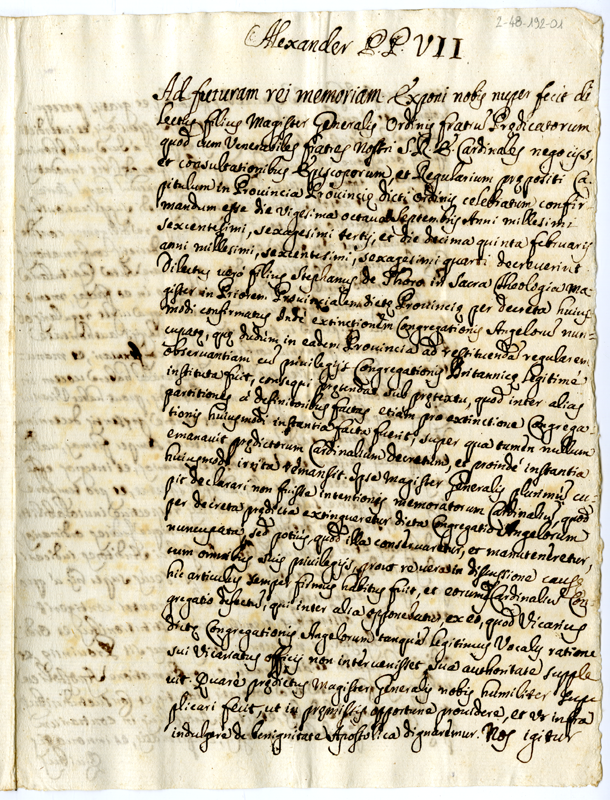 2-48-192-01
Alexander P.P. VII
Ad futuram rei memoriam Exponi nobis nuper fecit di
lectus filius Magister Generalis Ordinis fratrũ Prędicatorum
quod cum Venerabiles fratres Nostri S.R.E. Cardinales negocijs,
et consultationibus Episcoporum et Regularium prępositi Ca
pitulum in Provincia Provincię dicti Ordinis celebratum confir
mandum esse die vigesima octaua Septembris Anni millesimi
sexcentesimi, sexagesimi tertij, et die decima quinta februarij
anni millesimi, sexcentesimi, sexagesimi quarti decreuerint
Dilectus verò filius Stephanus de Thoro in Sacra Theologia Ma
gister in Priorem Provincialem dictę Provincię per decreta huius
modi confirmatus Inde extinctionem Congregationis Angelorũ nun
cupatę, quę dudum in eadem Provincia ad restituendã regularem
observantiam cũ privilegijs Congregationis Britannicę legitimè
instituta fuit, consequi prętendat sub prętextu, quod inter alias
partitiones à definitoribus factas etiam pro extinctione Congrega
tionis huiusmodi instantia facta fuerit, super qua tamen nullum
emanauit prędictorum Cardinalium decretum, et proinde instantia
huiusmodi irrita remansit. Ipse Magister Generalis plurimũ cu
pit declarari non fuisse intentionis memoratorum Cardinaliũ, quod
per decreta prędicta extingueretur dicta Congregatio Angelorum
nuncupata, sed potius, quod illa conseruaretur, et manuteneretur,
cum omnibus suis privilegijs, prout reuera in discussione causę
hic articulus semper firmus habitus fuit, et eorumdẽ Cardinaliũ Con
gregatio defectus, qui inter alia opponebatur, ex eo, quod Vicarius
dictę Congregationis Angelorum tanquã legitimus Vocalis ratione
sui Vicariatus officij non interuenisset sua authoritate supple
uit. Quare prędictus Magister Generalis nobis humiliter supp
plicari fecit, ut in pręmissis opportunè prouidere, et ut infra
indulgere de benignitate Apostolica dignaremur. Nos igitur